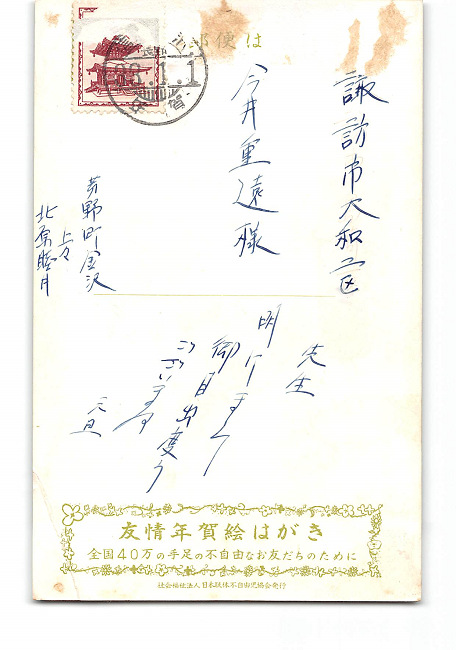 郵便は
諏訪市大和区
今井重遠様
茅野町金沢
上々
北原睦月
先生
明けまして
御目出度う
ございます
元旦
友情年賀絵はがき
全国40万の手足の不自由なお友だちのために
社会福祉法人 日本肢体不自由児協会発行